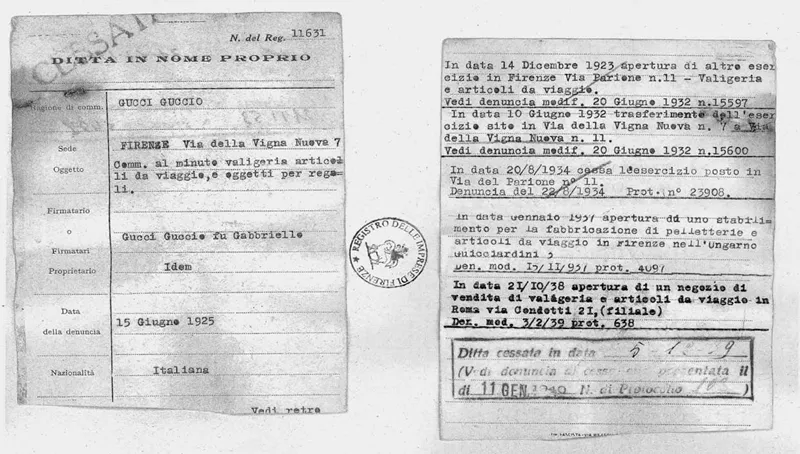 CESSATA
N. del Reg. 11631
DITTA IN NOME PROPRIO
Ragione di comm. GUCCI GUCCIO
Sede FIRENZE Via della Vigna Nuova 7
Oggetto Comm. al minuto valigeria artico-
li da viaggio,e oggetti per rega-
li.
Firmatario
o
Firmatari Gucci Guccio fu Gabbriello
Proprietario Idem
Data
della denuncia 15 Giugno 1925
Nazionalità Italiana
Vedi retro
REGISTRO DELLE IMPRESE DI FIRENZE
In data 14 Dicembre 1923 apertura di altro eser
cizio in Firenze Via Parione n.11 - Valigeria
e articoli da viaggio.
Vedi denuncia modif. 20 Giugno 1932 n.15597
In data 10 Giugno 1932 trasferimento dell'eser
cizio sito in Via della Vigna Nuova n. 7 a Via
della Vigna Nuova n. 11.
Vedi denuncia modif. 20 Giugno 1932 n.15600
In data 20/8/1934 cessa l'esercizio posto in
Via del Parione n° 11.
Denuncia del 22/8/1934 Prot. n° 23908.
In data Gennaio 1937 apertura di uno stabili-
mento per la fabbricazione di pelletterie e
articoli da viaggio in Firenze nell'Ungarno
Guicciardini
Den. mod. 15/11/937 prot. 4097
In data 21/10/38 apertura di un negozio di
vendita di valigeria e articoli da viaggio in
Roma via Condotti 21,(filiale)
Den. mod. 3/2/39 prot. 638
Ditta cessata in data 5
(Vedi denuncia di cessazione presentata il
di 11 GEN. N. di Protocollo )